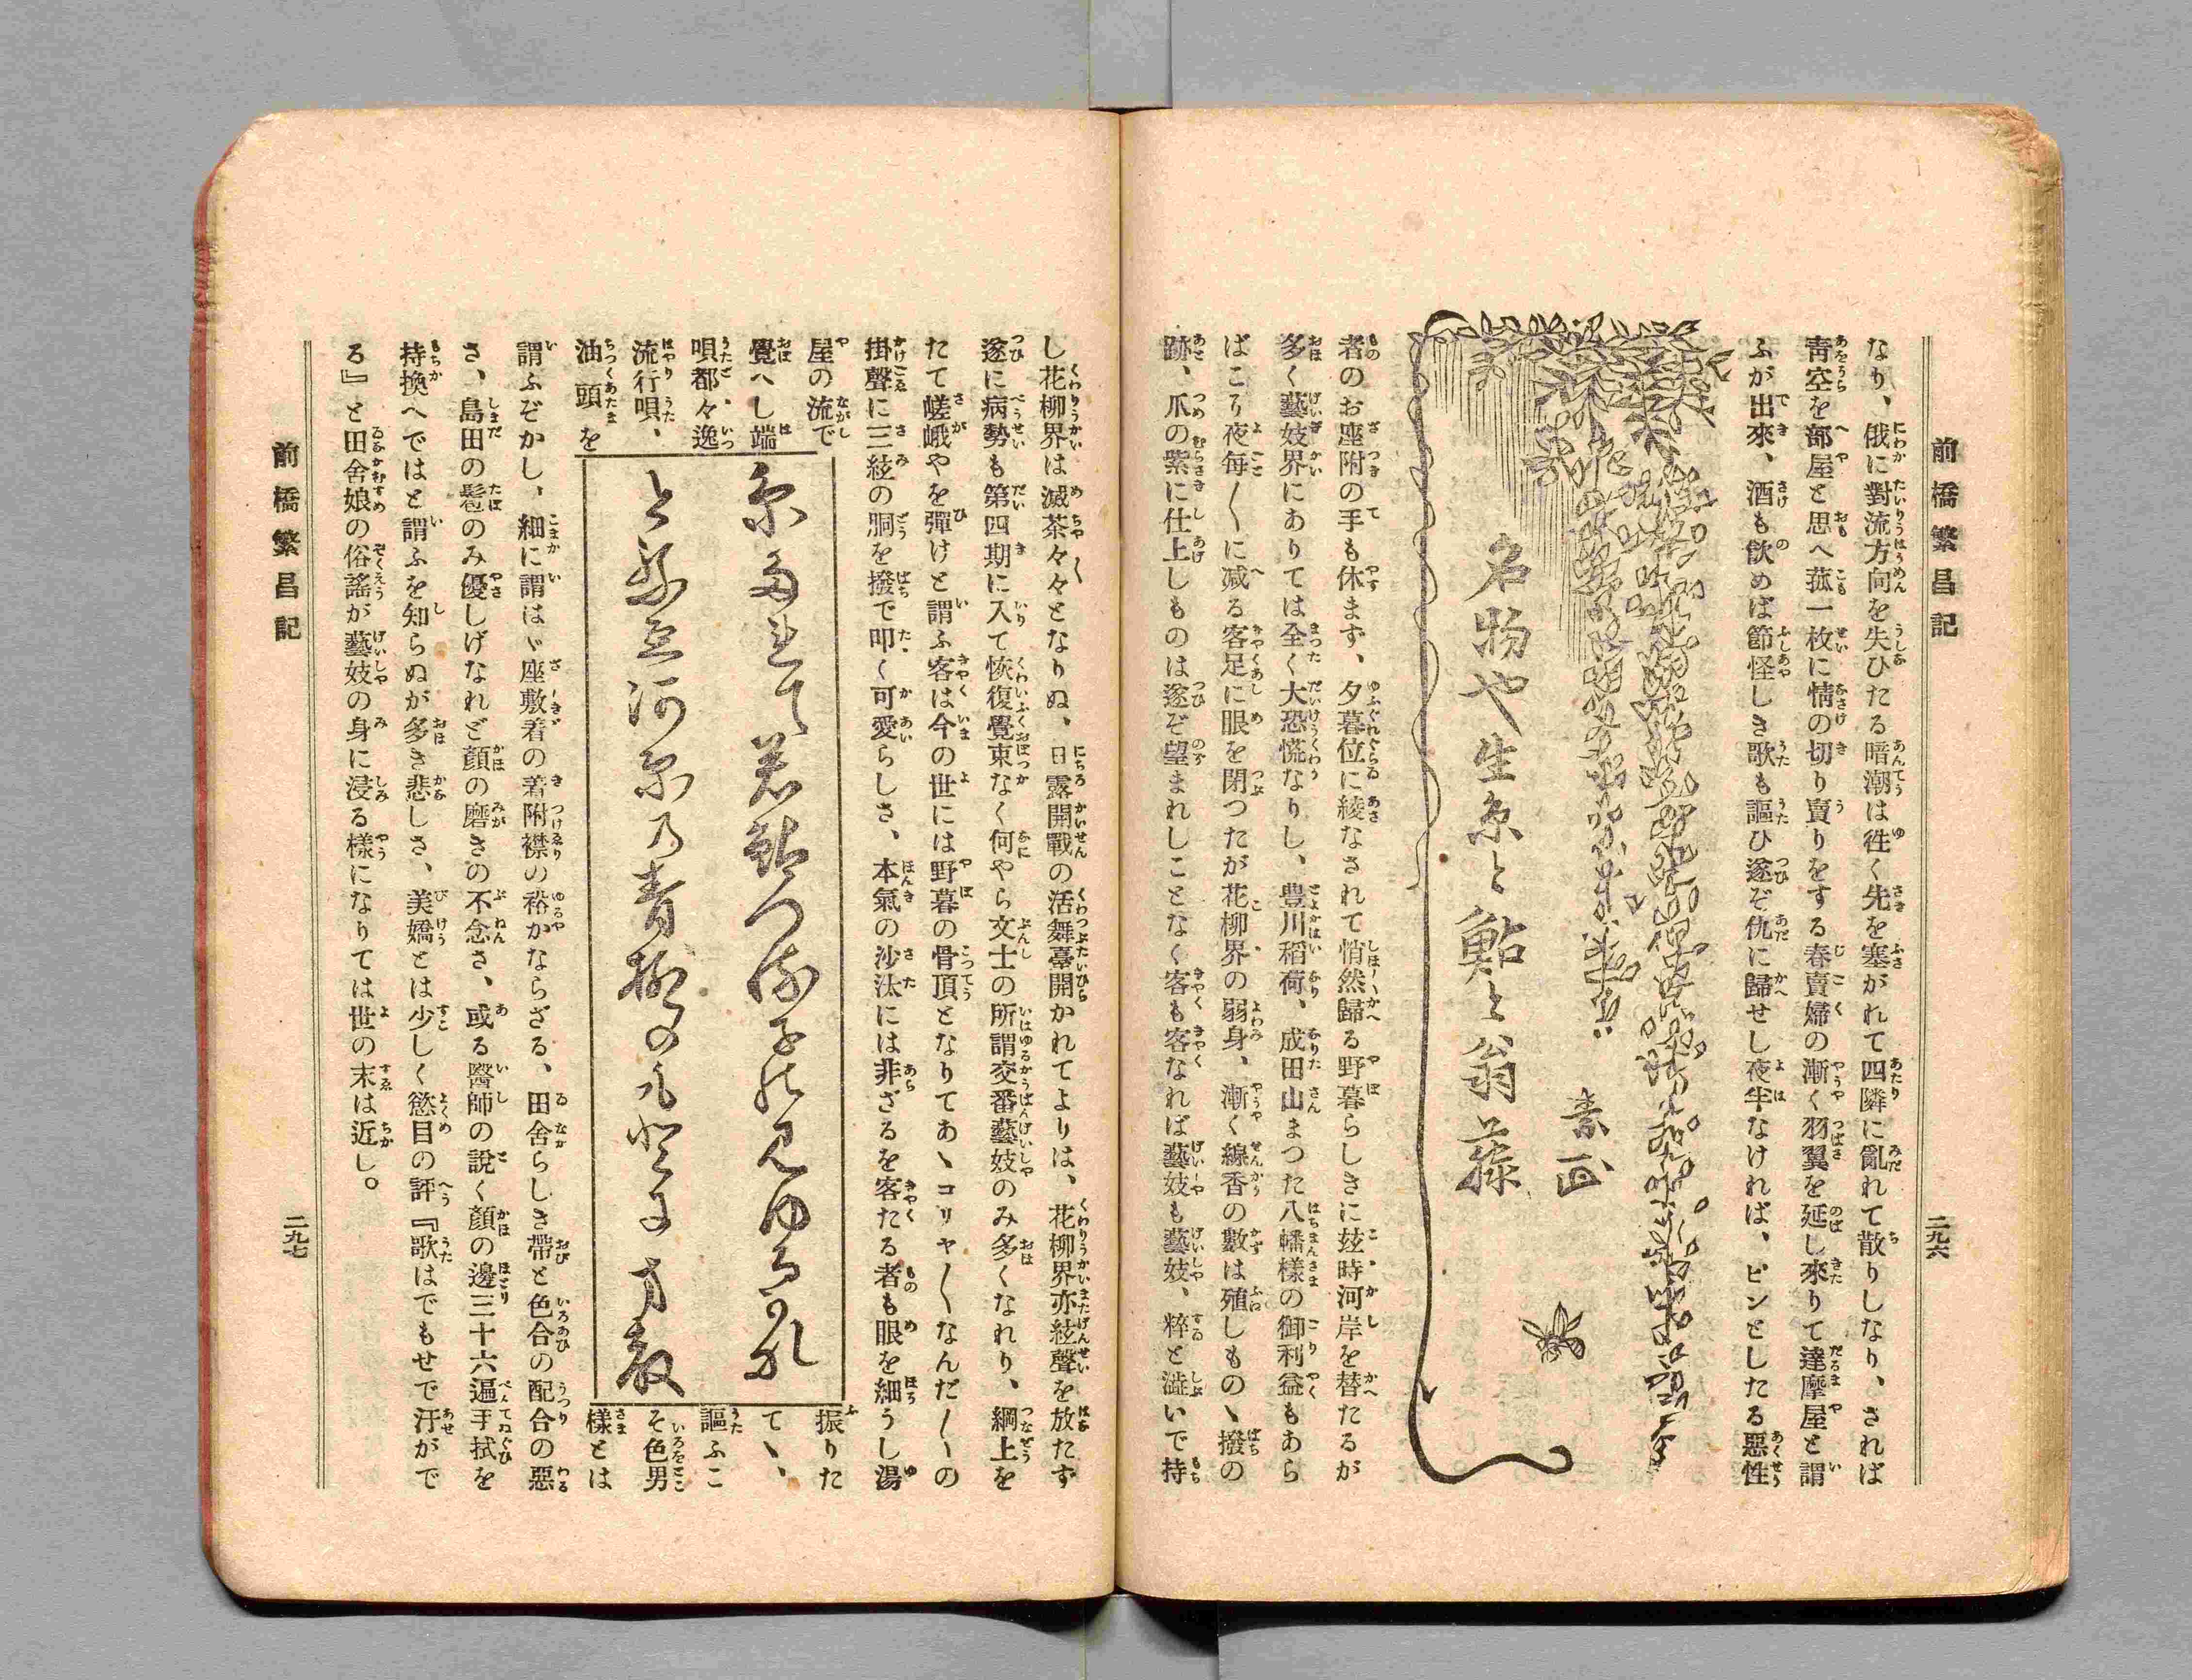 前橋繁昌記
二九六
なり、俄に對流方向を失ひたる暗潮は徃く先を塞がれて四隣に亂れて散りしなり、されば
靑空を部屋と思へ菰一枚に情の切り賣りをする春賣婦の漸く羽翼を延し來りて達摩屋と謂
ふが出來、酒も飮めば節怪しき歌も謳ひ遂ぞ仇に歸せし夜半なければ、ピンとしたる惡性
素画
名物や生糸と鮎と翁藤
者のお座附の手も休まず、夕暮位に綾なされて悄然歸る野暮らしきに玆時河岸を替たるが
多く藝妓界にありては全く大恐慌なりし、豊川稻荷、成田山まつた八幡樣の御利益もあら
ばこり夜每〱に減る客足に眼を閉つたが花柳界の弱身、漸く線香の數は殖しものヽ撥の
跡、爪の紫に仕上しものは遂ぞ望まれしことなく客も客なれば藝妓も藝妓、粹と澁いで持
し花柳界は滅茶々々となりぬ、日露開戰の活舞臺開かれてよりは、花柳界亦絃聲を放たず
遂に病勢も第四期に入て恢復覺束なく何やら文士の所謂交番藝妓のみ多くなれり、綱上を
たて嵯峨やを彈けと謂ふ客は今の世には野暮の骨頂となりてあヽコリャ〱なんだ〱の
掛聲に三絃の胴を撥で叩く可愛らしさ、本氣の沙汰には非ざるを客たる者も眼を細うし湯
屋の流で
覺へし端
唄、都々逸
流行唄、
油頭を
振りた
てヽ、
謳ふこ
そ色男
樣とは
謂ふぞかし、細に謂はヾ座敷着の着附襟の裕かならざる、田舍らしき帶と色合の配合の惡
さ、島田の髱のみ優しげなれど顏の磨きの不念さ、或る醫師の說く顏の邊三十六遍手拭を
持換へではと謂ふを知らぬが多き悲しさ、美嬌とは少しく慾目の評『歌はでもせで汗がで
る』と田舍娘の俗謠が藝妓の身に浸る樣になりては世の末は近し。
前橋繁昌記
二九七